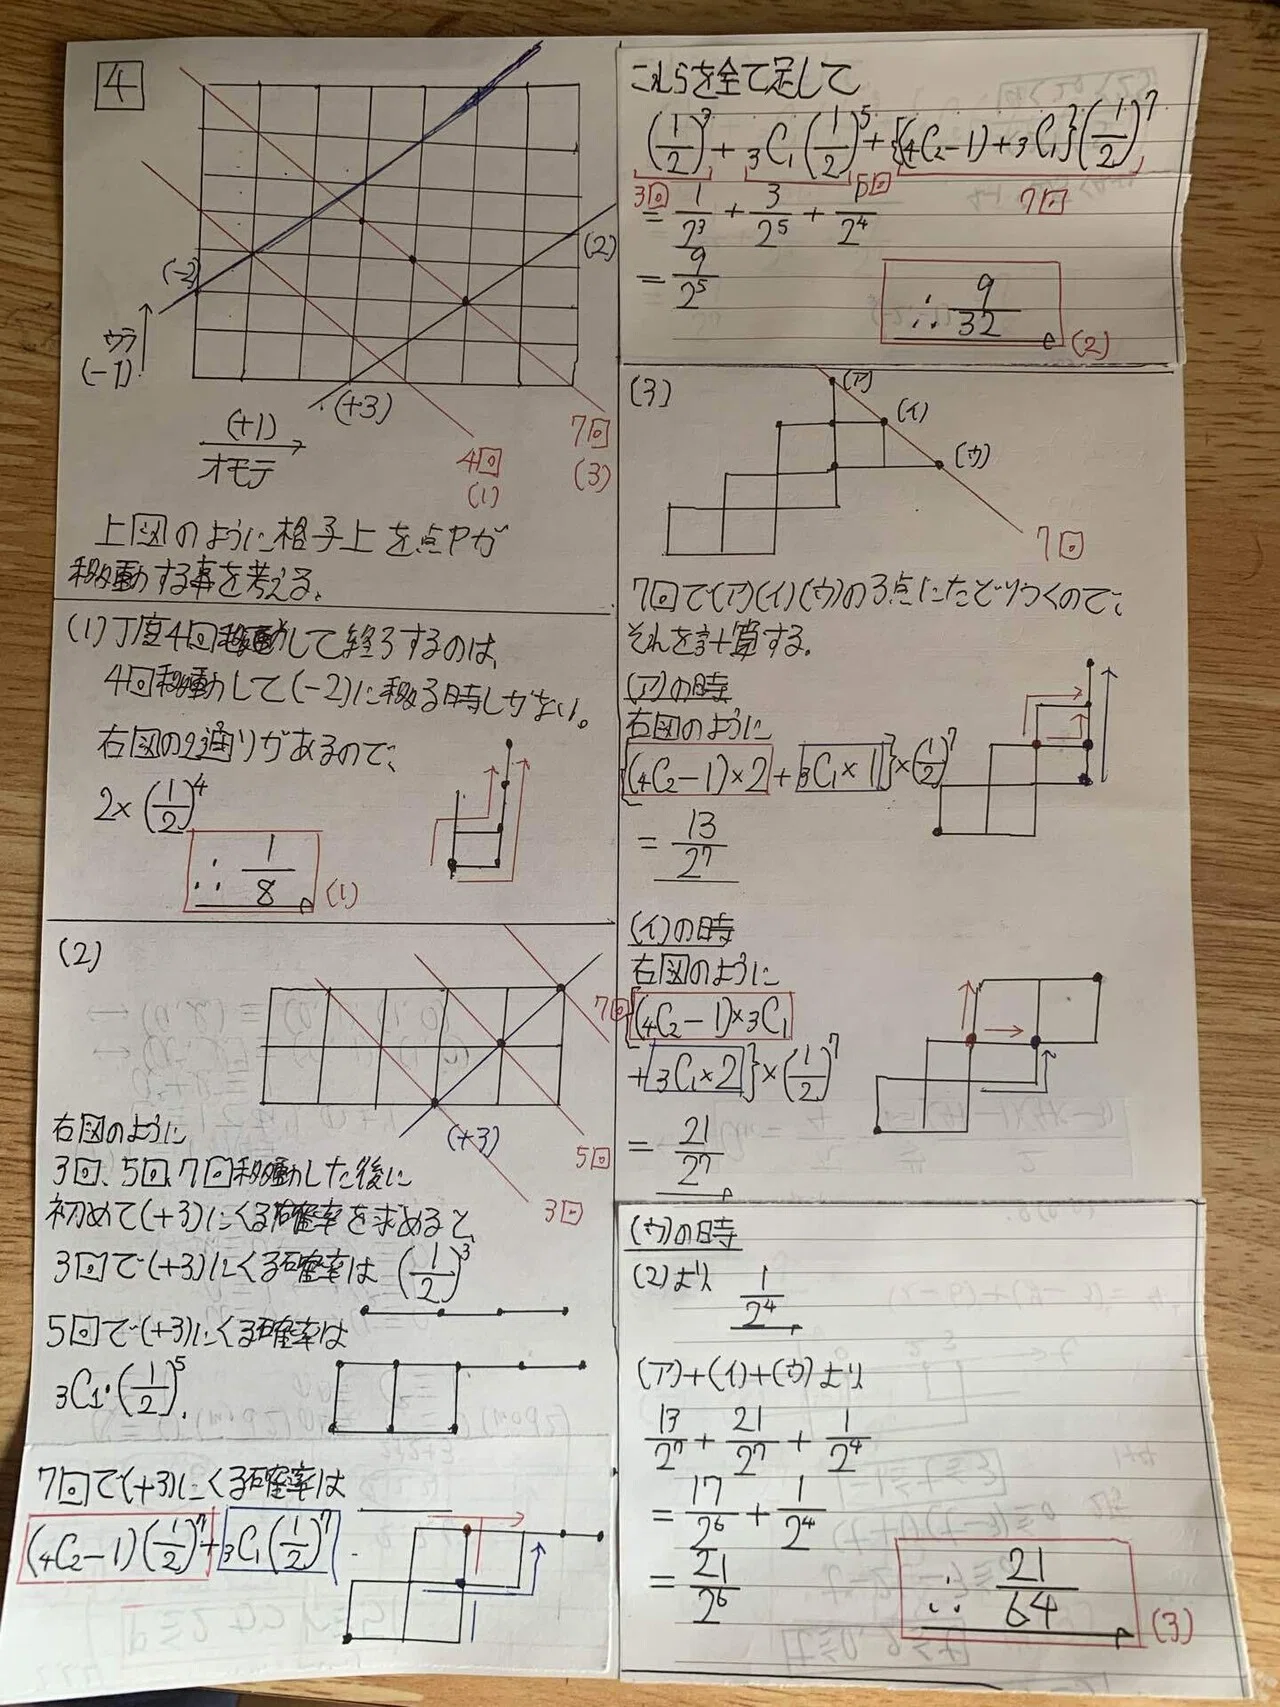 4
(-2)
(2)
ウラ
(-1)
(+3)
(+1)
オモテ
4回
(1)
7回
(3)
上図のように格子上を点Pが
移動する事を考える。
(1)丁度4回移動して終了するのは、
4回移動して(-2)に移る時しかない。
右図の2通りがあるので、
2×(1/2)^4
∴ 1/8 (1)
(2)
7回
5回
3回
(+3)
右図のように
3回、5回、7回移動した後に
初めて(+3)にくる確率を求めると、
3回で(+3)にくる確率は (1/2)^3
5回で(+3)にくる確率は
3C1・(1/2)^5.
7回で(+3)にくる確率は
(4C2-1)(1/2)^7+3C1(1/2)^7
これらを全て足して
(1/2)^3+3C1(1/2)^5+{(4C2-1)+3C1}(1/2)^7
3回 5回 7回
=1/2^3+3/2^5+1/2^4
=9/2^5
∴ 9/32 (2)
(3)
(ア)
(イ)
(ウ)
7回
7回で(ア)(イ)(ウ)の3点にたどりつくので、
それを計算する。
(ア)の時
右図のように
{(4C2-1)×2+3C1×1}×(1/2)^7
=13/2^7
(イ)の時
右図のように
{(4C2-1)×3C1
+3C1×2}×(1/2)^7
=21/2^7
(ウ)の時
(2)より 1/2^4
(ア)+(イ)+(ウ)より
13/2^7+21/2^7+1/2^4
=17/2^6+1/2^4
=21/2^6
∴ 21/64 (3)